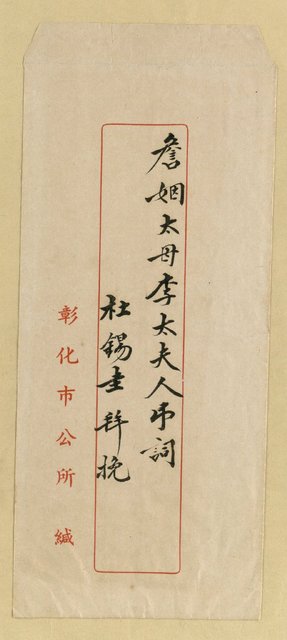 詹姻太母李太夫人弔詞
杜錫圭拜挽
彰化市公所 緘